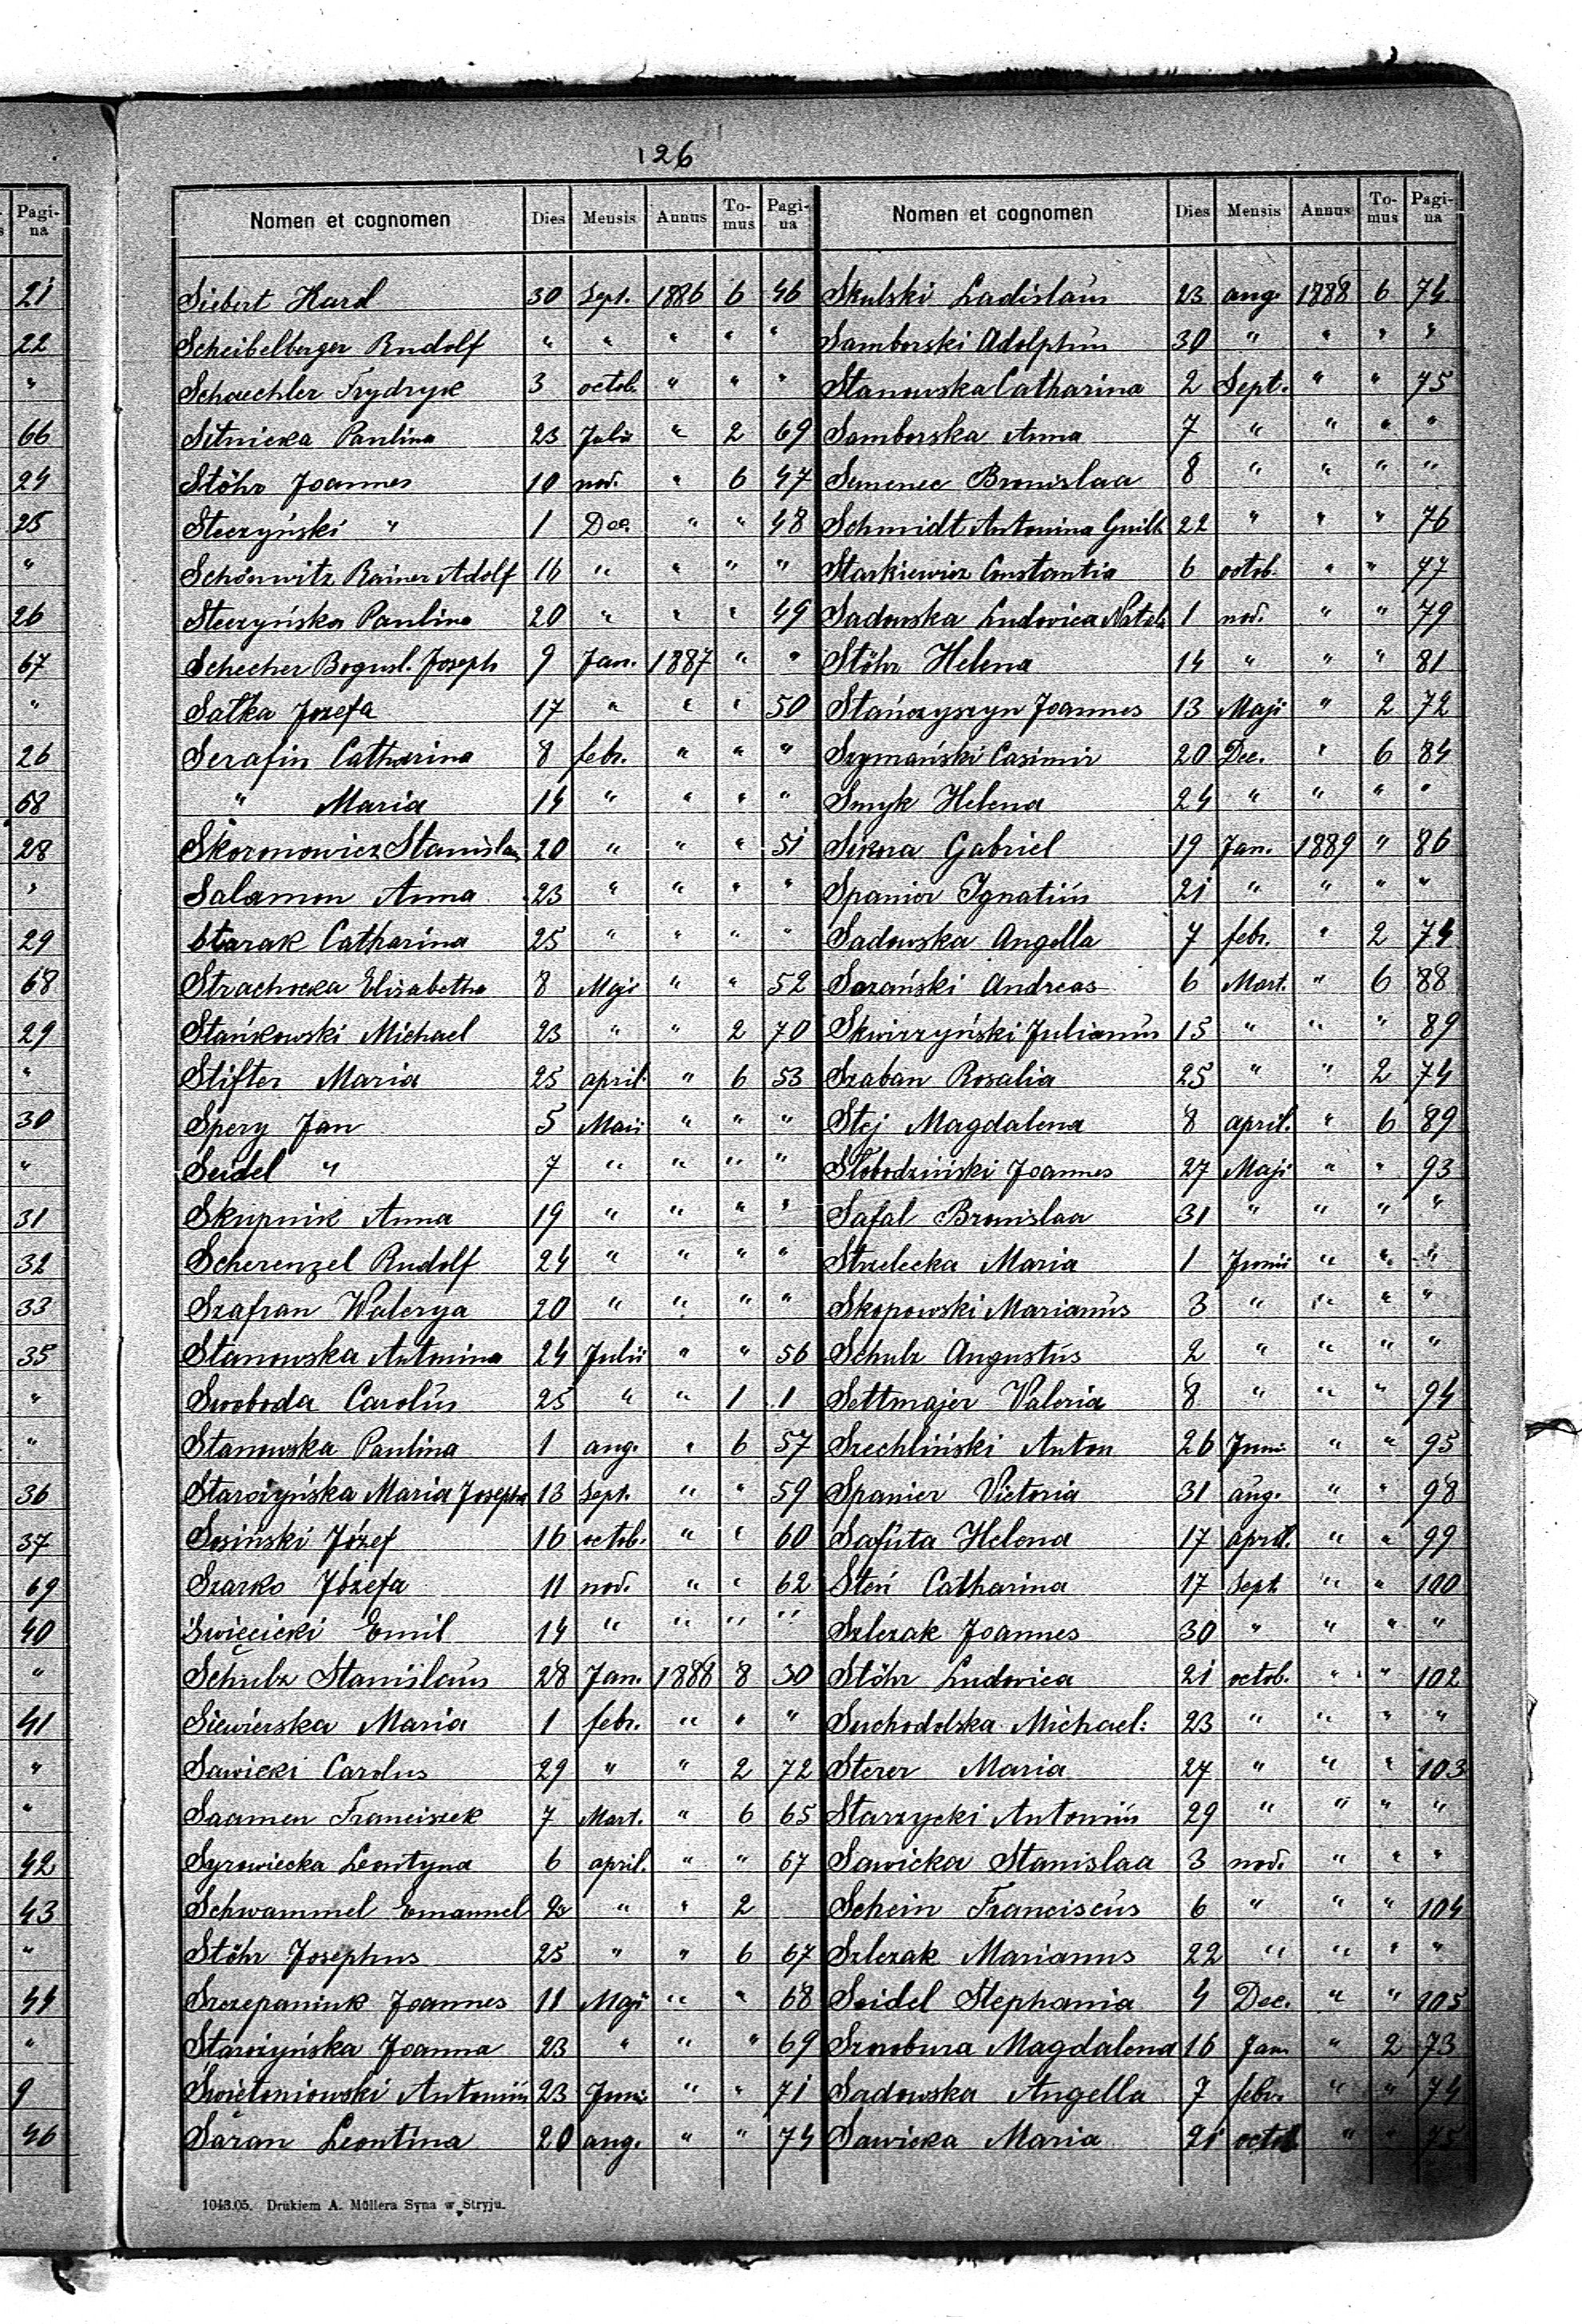 126
Pagi-
na
21
22
"
66
24
25
"
26
67
"
26
68
28
"
29
68
29
"
30
"
31
32
33
35
"
"
36
37
69
40
"
41
"
"
42
43
"
44
"
9
46
Nomen et cognomen Dies Mensis Annus To-mus Pagi-na
Siebert Karol 30 Sept. 1886 6 46
Scheibelberger Rudolf " " " " "
Schaechler Frydryk 3 octob. " " "
Sitnicka Paulina 23 Julii " 2 69
Stöhr Joannes 10 nov. " 6 47
Steczyński " 1 Dec. " " 48
Schönwitz Rainer Adolf 16 " " " "
Steczyńska Paulina 20 " " " 49
Schecher Bogusl. Joseph 9 Jan. 1887 " "
Satka Jozefa 17 " " " 50
Serafin Catharina 8 febr. " " "
" Maria 14 " " " "
Skoromowicz Stanisla 20 " " " 51
Salamon Anna 23 " " " "
Starak Catharina 25 " " " "
Strachocka Elisabetha 8 Maji " " 52
Stańkowski Michael 23 " " 2 70
Stifter Maria 25 april. " 6 53
Spery Jan 5 Maii " " "
Seidel " 7 " " " "
Skupnik Anna 19 " " " "
Scherenzel Rudolf 24 " " " "
Szafran Walerya 20 " " " "
Stanowska Antonina 24 Julii " " 56
Swoboda Carolus 25 " " 1 1
Stanowska Paulina 1 aug. " 6 57
Starożyńska Maria Josepha 13 Sept. " " 59
Sosiński Józef 16 octob. " " 60
Szarko Józefa 11 nov. " " 62
Święcicki Emil 14 " " " "
Schulz Stanislaus 28 Jan. 1888 8 30
Siewierska Maria 1 febr. " " "
Sawicki Carolus 29 " " 2 72
Saamen Franciszek 7 Mart. " 6 65
Syrowiecka Leontyna 6 april. " " 67
Schwammel Emanuel " " 2
Stöhr Josephus 25 " " 6 67
Szczepaniuk Joannes 11 Maji " " 68
Starożyńska Joanna 23 " " " 69
Świetoniowski Antoniūs 23 Junii " " 71
Saran Leontina 20 aug. " " 74
Nomen et cognomen Dies Mensis Annus To-mus Pagi-na
Skulski Ladislaus 23 aug. 1888 6 74
Samborski Adolphus 30 " " " "
Stanowska Catharina 2 Sept. " " 75
Samborska Anna 7 " " " "
Semenec Bronislaa 8 " " " "
Schmidt Antonina Guilh 22 " " " 76
Starkiewicz Constantia 6 octob. " " 77
Sadowska Ludovica Natala 1 nov. " " 79
Stöhr Helena 14 " " " 81
Stańczyszyn Joannes 13 Maji " 2 72
Szymański Casimir 20 Dec. " 6 84
Smyk Helena 24 " " " "
Sikora Gabriel 19 Jan. 1889 " 86
Spanior Ignatius 21 " " " "
Sadowska Angella 7 febr. " 2 74
Sozański Andreas 6 Mart. " 6 88
Skwirzyński Julianus 15 " " " 89
Szaban Rosalia 25 " " 2 74
Stej Magdalena 8 april. " 6 89
Słobodziński Joannes 27 Maji " " 93
Safal Bronislaa 31 " " " "
Strzelecka Maria 1 Junii " " "
Skopowski Marianus 3 " " " "
Schulz Augustus 2 " " " "
Settmajer Valeria 8 " " " 94
Szechliński Anton 26 Junii " " 95
Spanier Victoria 31 aug. " " 98
Safuta Helena 17 april. " " 99
Steń Catharina 17 Sept " " 100
Szlezak Joannes 30 " " " "
Stöhr Ludovica 21 octob. " " 102
Suchodolska Michael: 23 " " " "
Sterer Maria 27 " " " 103
Starzycki Antoniūs 29 " " " "
Sawicka Stanislaa 3 nov. " " "
Schein Franciscus 6 " " " 104
Szlezak Marianus 22 " " " "
Seidel Stephania 4 Dec. " " 105
Szwobura Magdalena 16 Jan " 2 73
Sadowska Angella 7 febr. " " 74
Sawicka Maria 21 octob " " 75
1043.05. Drukiem A. Müllera Syna w Stryju.